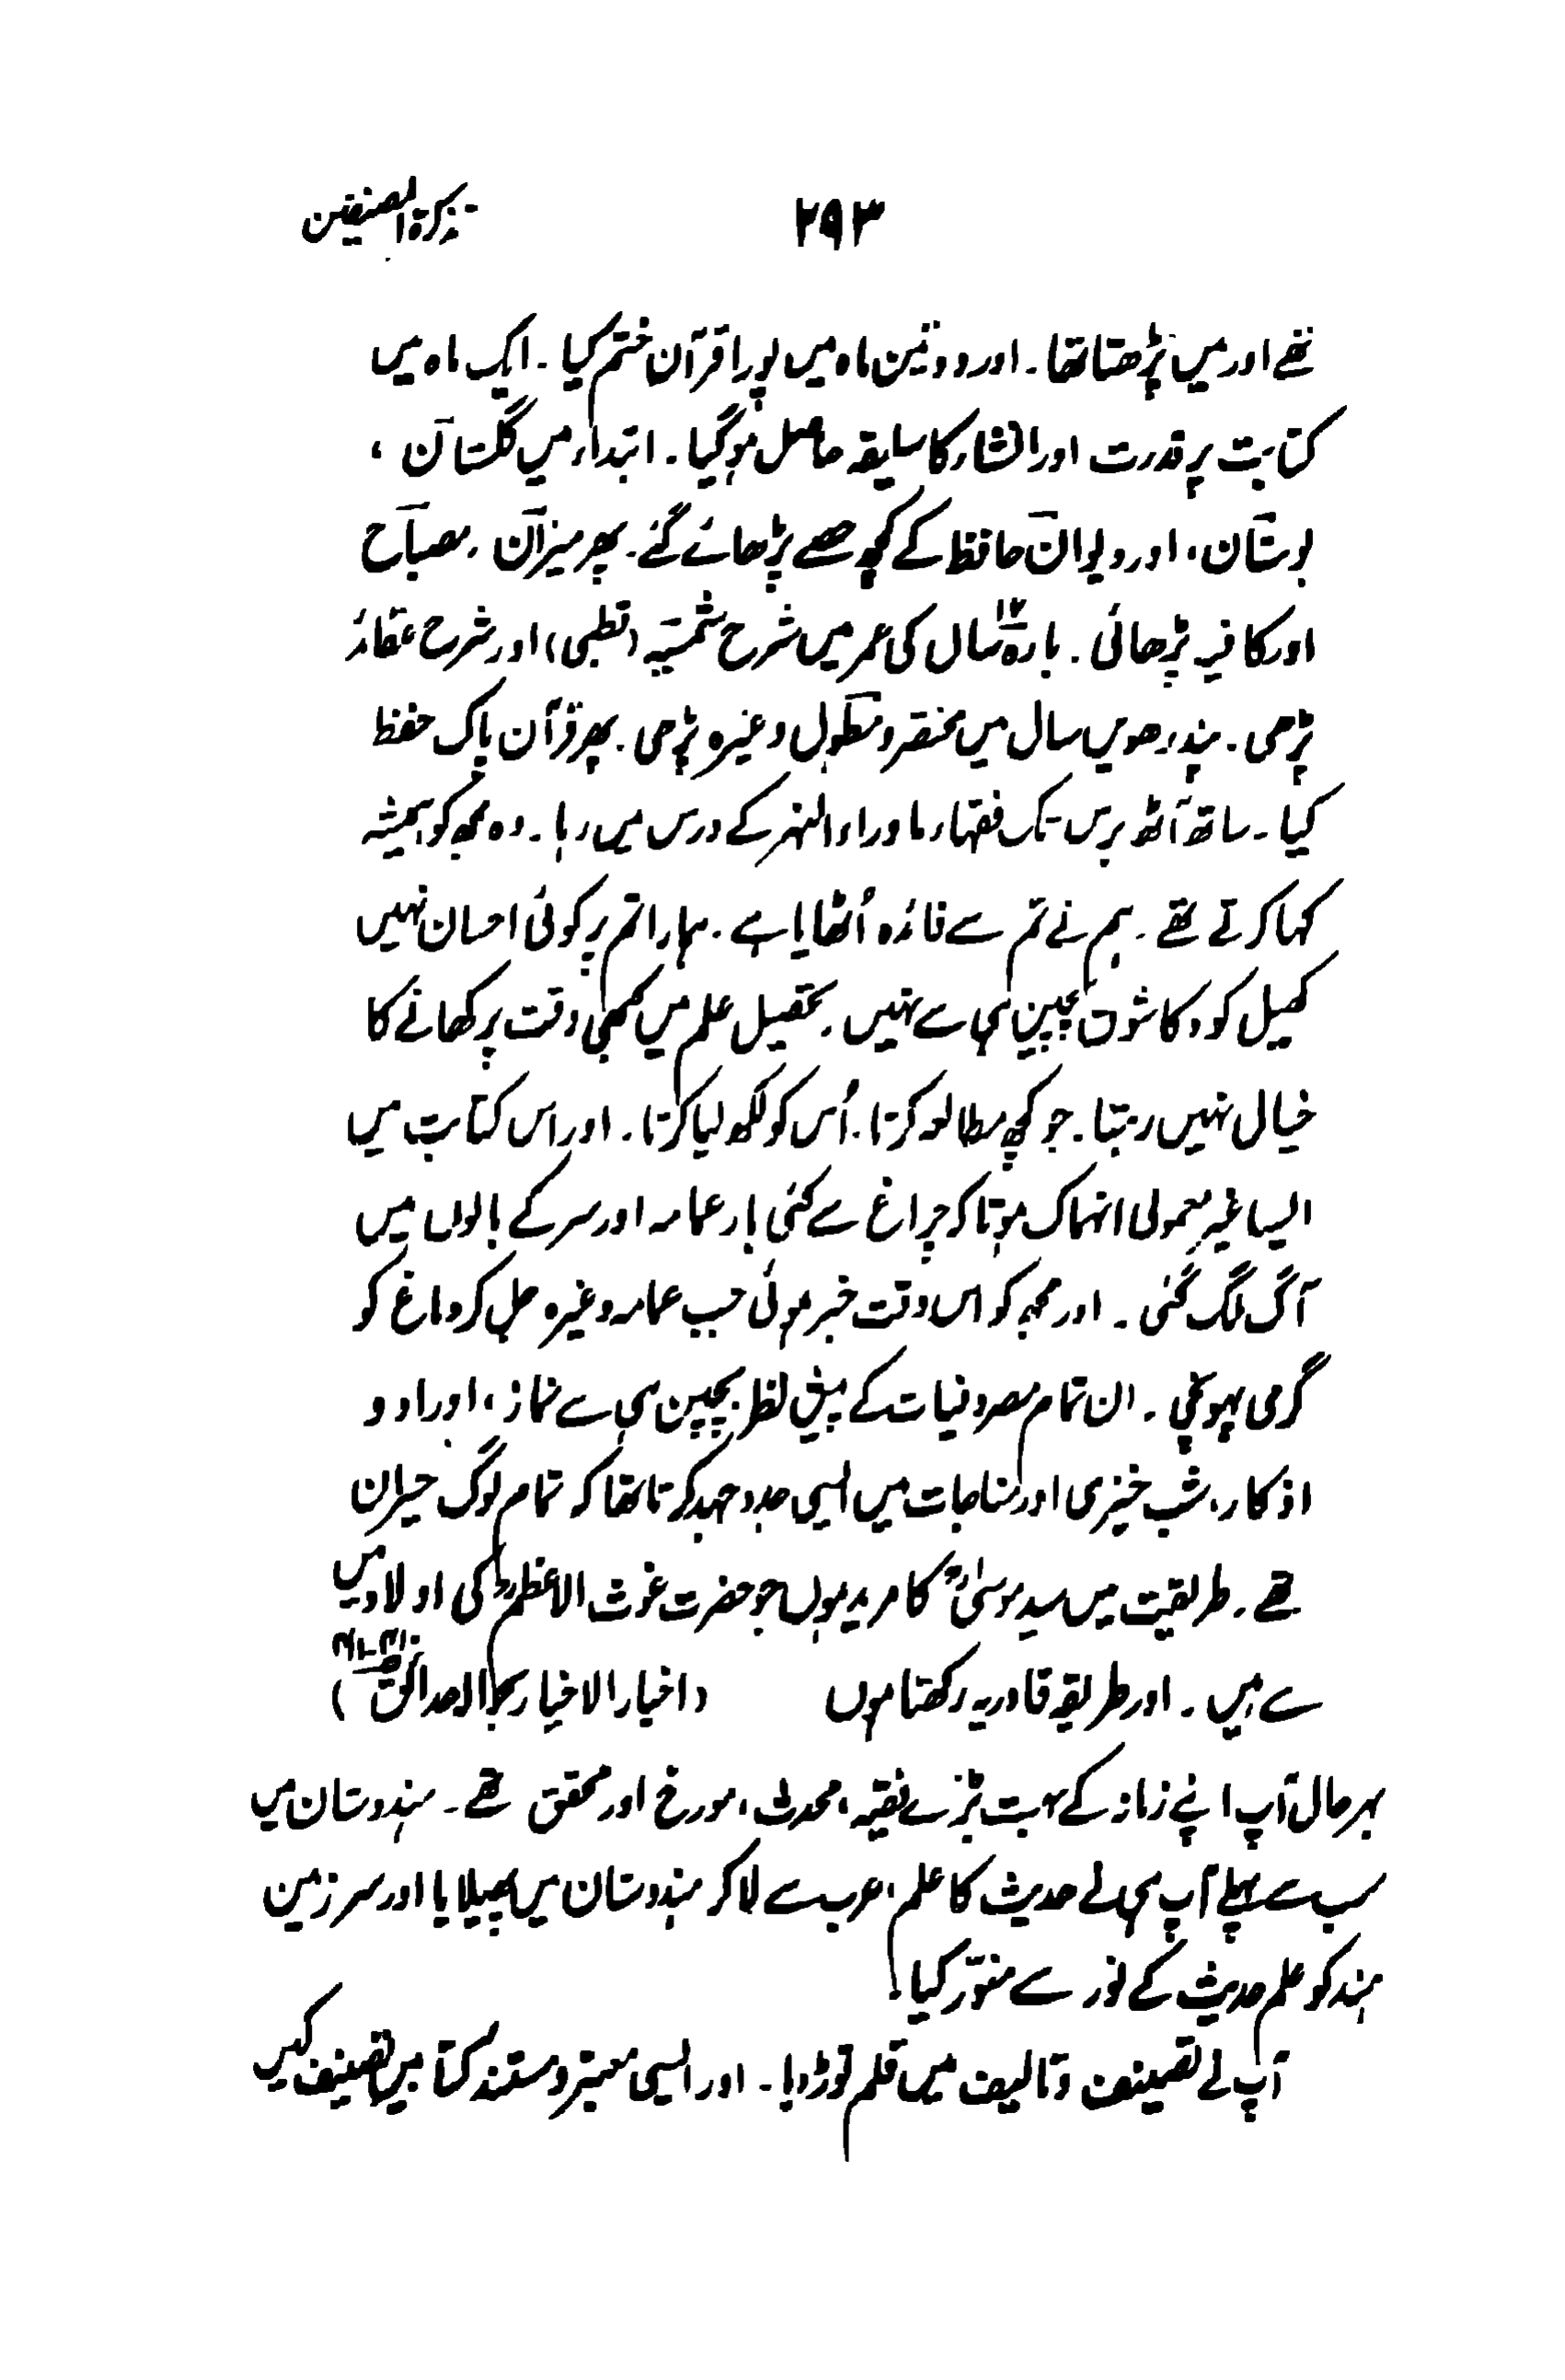 تذکرۃ المصنفین
۲۹۳
تھے اور میں پڑھتا تھا۔ اور دو تین ماہ میں پورا قرآن ختم کیا۔ ایک ماہ میں
کتابت پر قدرت اور انشاء کا سلیقہ حاصل ہوگیا۔ ابتداء میں گلستان،
بوستان، اور دیوان حافظ کے کچھ حصے پڑھائے گئے۔ پھر میزان، مصباح
اور کافیہ پڑھائی۔ بارہ ۱۲ سال کی عمر میں شرح شمسیہ (قطبی) اور شرح عقائد
پڑھی۔ پندرھویں سال میں مختصر و مطول وغیرہ پڑھی۔ پھر قرآن پاک حفظ
کیا۔ ساتھ آٹھ برس تک فقہاء ماوراء النہر کے درس میں رہا۔ وہ مجھ کو ہمیشہ
کہا کرتے تھے۔ ہم نے تم سے فائدہ اُٹھایا ہے۔ ہمارا تم پر کوئی احسان نہیں
کھیل کود کا شوق بچپن ہی سے نہیں۔ تحصیل علم میں کبھی وقت پر کھانے کا
خیال نہیں رہتا۔ جو کچھ مطالعہ کرتا۔ اُس کو لکھ لیا کرتا۔ اور اس کتابت میں
ایسا غیر معمولی انہماک ہوتا کہ چراغ سے کئی بار عمامہ اور سر کے بالوں میں
آگ لگ گئی۔ اور مجھ کو اس وقت خبر ہوئی جب عمامہ وغیرہ جل کر دماغ کو
گرمی پہونچی۔ ان تمام مصروفیات کے پیش نظر بچپن ہی سے نماز، اوراد و
اذکار، شب خیزی اور مناجات میں ایسی جدوجہد کرتا تھا کہ تمام لوگ حیران
تھے۔ طریقیت میں سید موسیٰؒ کا مرید ہوں جو حضرت غوث الاعظمؒ کی اولاد میں
سے ہیں۔ اور طریقہ قادریہ رکھتا ہوں (اخبار الاخیار بحوالہ حدائق)
بہرحال آپ اپنے زمانہ کے بہت بڑے فقیہ، محدث، مورخ اور محقق تھے۔ ہندوستان میں
سب سے پہلے آپ ہی نے حدیث کا علم، عرب سے لاکر ہندوستان میں پھیلایا اور سرزمین
ہند کو علم حدیث کے نور سے منوّر کیا۔
آپ نے تصنیف و تالیف میں قلم توڑ دیا۔ اور ایسی معتبر و مستند کتابیں تصنیف کیں